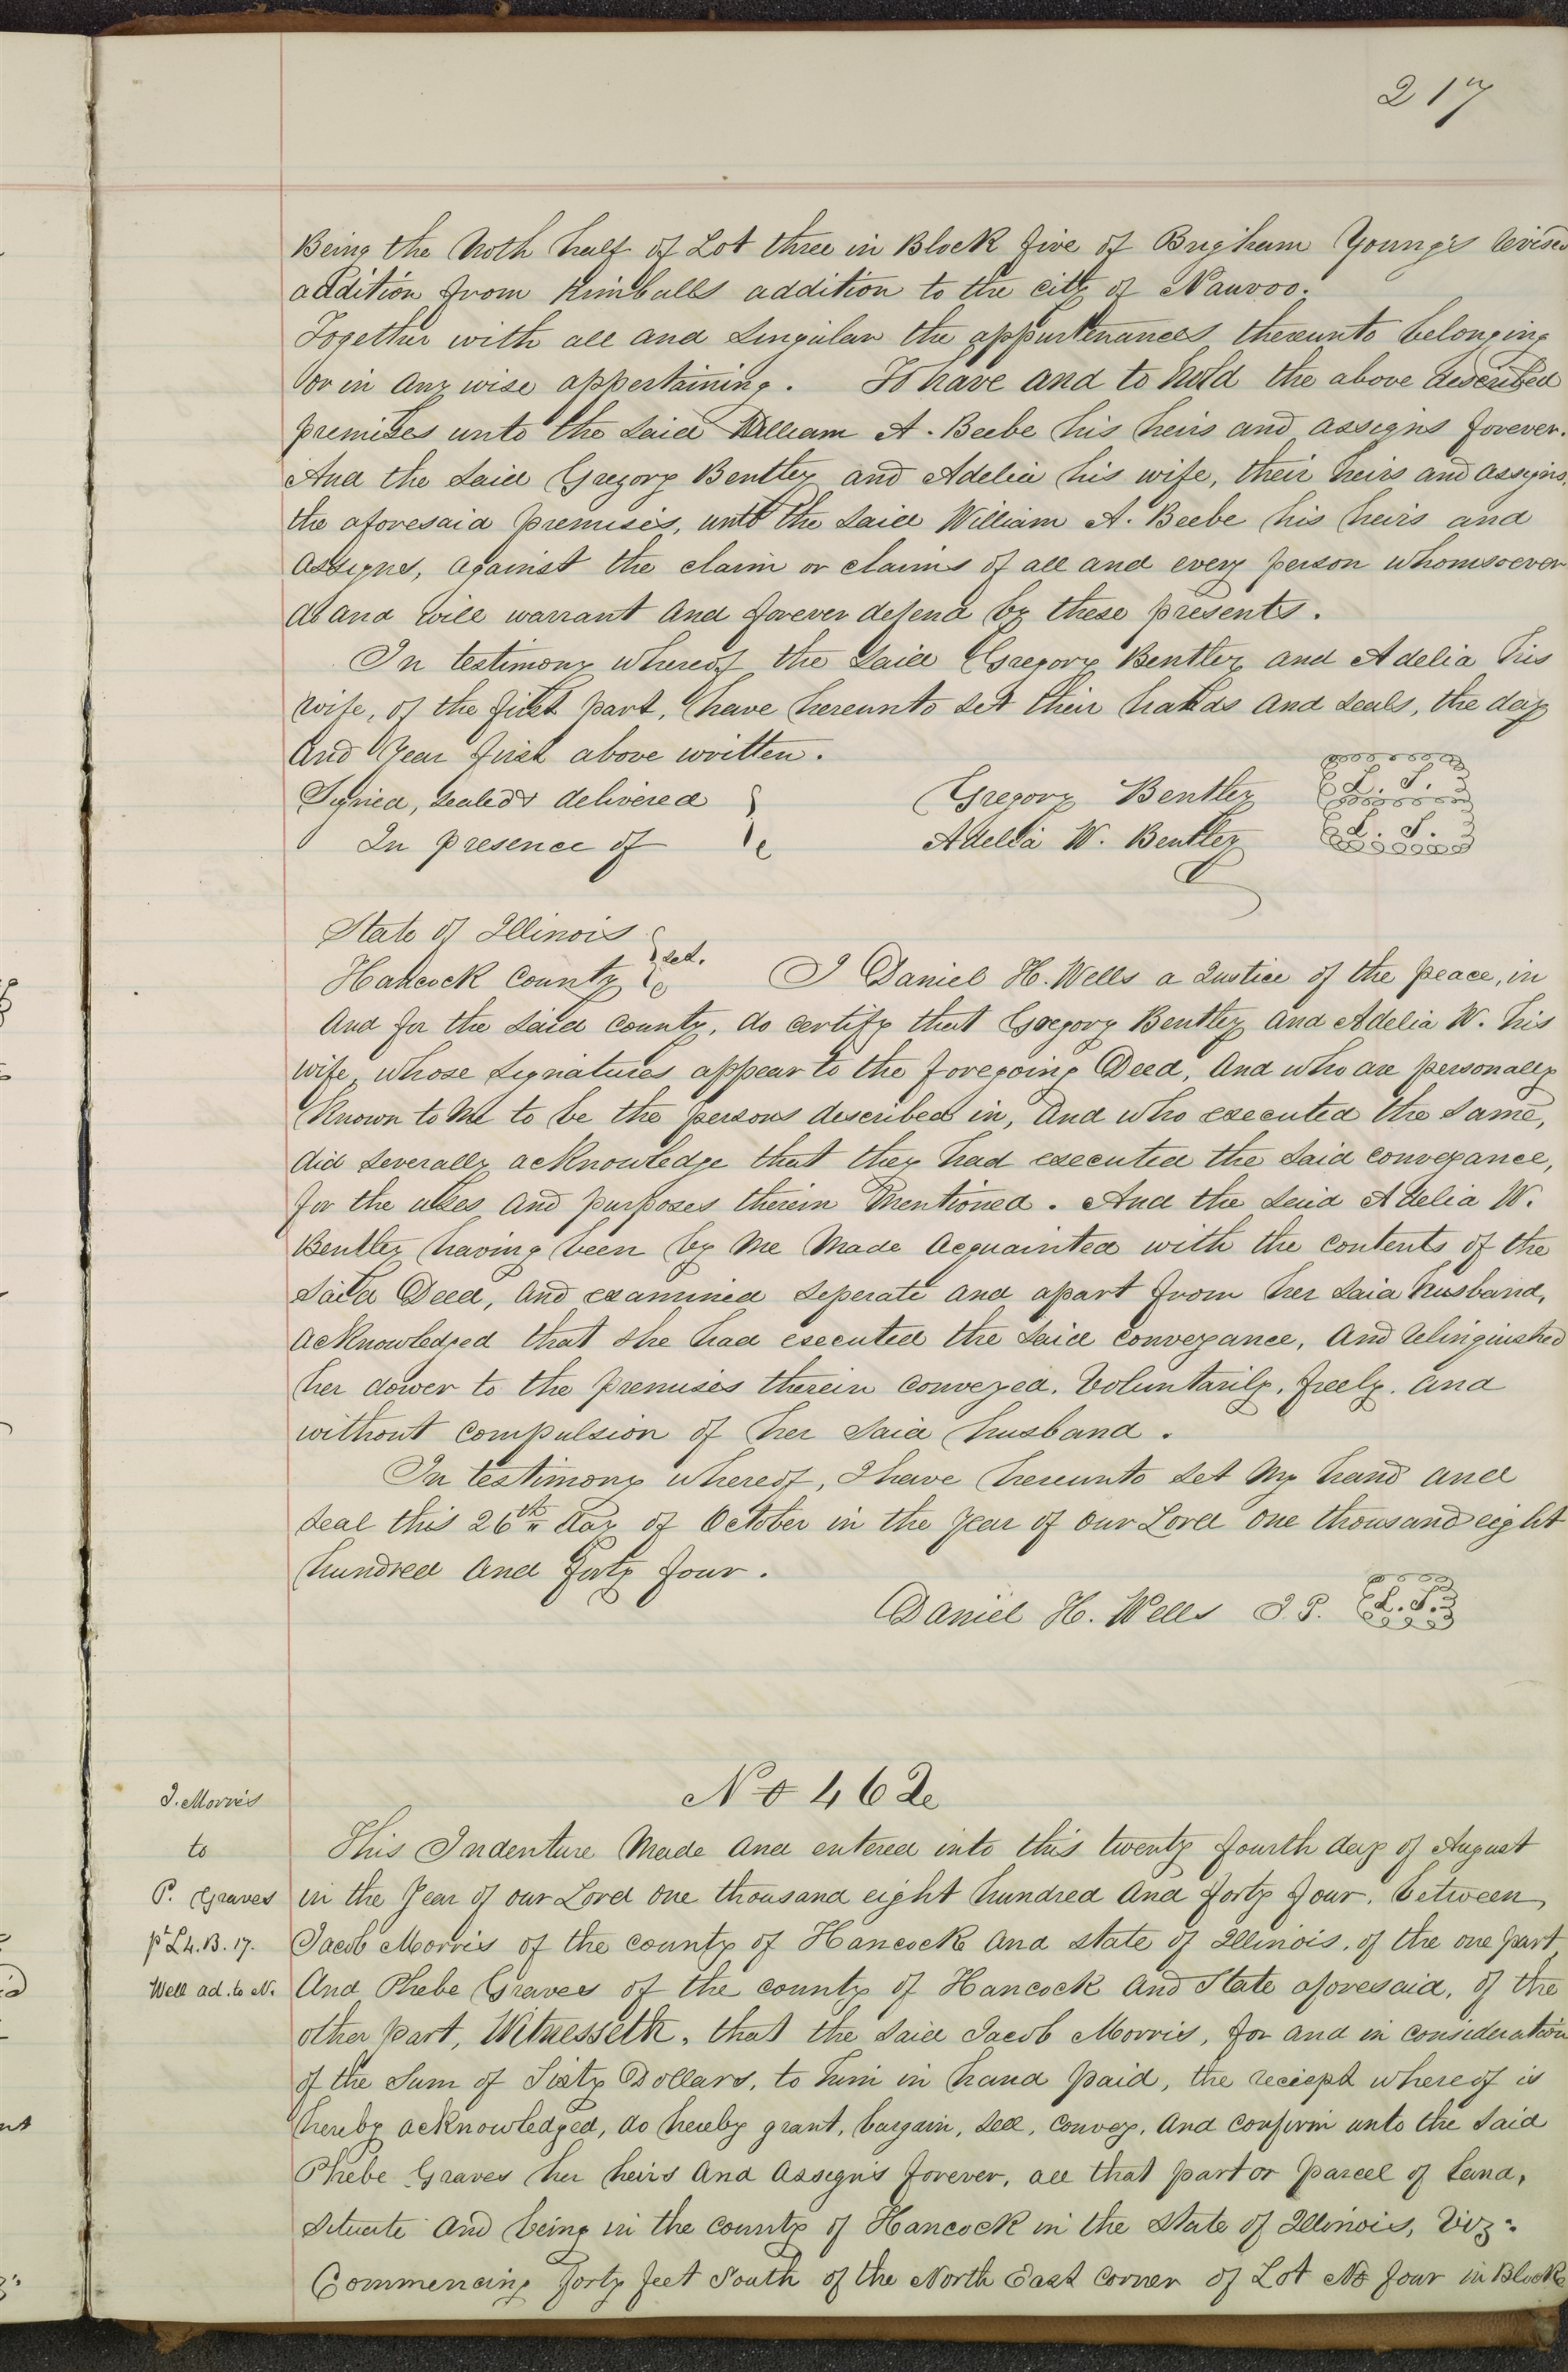 217
Being the Noth half of Lot three in Block five of Brigham Young's revised
addition from Kimballs addition to the city of Nauvoo.
Together with all and singular the appurtenances thereunto belonging
or in any wise appertaining. To have and to hold the above described
premises unto the said William A. Beebe his heirs and assigns forever.
And the said Gregory Bentley and Adelia his wife, their heirs and assigns,
the aforesaid premises, unto the said William A. Beebe his heirs and
assigns, against the claim or claims of all and every person whomsoever
do and will warrant and forever defend by these presents.
In testimony whereof the said Gregory Bentley and Adelia his
wife, of the first part, have hereunto set their hands and seals, the day
and year first above written.
Signed, sealed & delivered Gregory Bentley L. S.
In presence of Adelia W. Bentley L. S.
State of Illinois
Hancock County sct. I Daniel H. Wells a Justice of the peace, in
and for the said county, do certify that Gregory Bentley and Adelia W. his
wife, whose signatures appear to the foregoing Deed, and who are personally
known to me to be the persons described in, and who executed the same,
did severally acknowledge that they had executed the said conveyance,
for the uses and purposes therein mentioned. And the said Adelia W.
Bentley having been by me made acquainted with the contents of the
said Deed, and examined seperate and apart from her said husband,
acknowledged that she had executed the said conveyance, and relinquished
her dower to the premises therein conveyed. Voluntarily, freely, and
without compulsion of her said husband.
In testimony whereof, I have hereunto set my hand and
seal this 26th day of October in the year of our Lord one thousand eight
hundred and forty four.
Daniel H. Wells J. P. L. S.
No 462
J. Morris
to
P. Graves
pt L4. B. 17.
Well ad. to N.
This Indenture made and entered into this twenty fourth day of August
in the year of our Lord one thousand eight hundred and forty four, between
Jacob Morris of the county of Hancock and state of Illinois, of the one part
And Phebe Graves of the county of Hancock and State aforesaid, of the
other part, Witnesseth, that the said Jacob Morris, for and in consideration
of the sum of Sixty Dollars, to him in hand paid, the reciept whereof is
hereby acknowledged, do hereby grant, bargain, sell, convey, and confirm unto the said
Phebe Graves her heirs and assigns forever, all that part or parcel of land,
situate and being in the county of Hancock in the State of Illinois, Viz:
Commencing forty feet South of the North East corner of Lot No four in Block